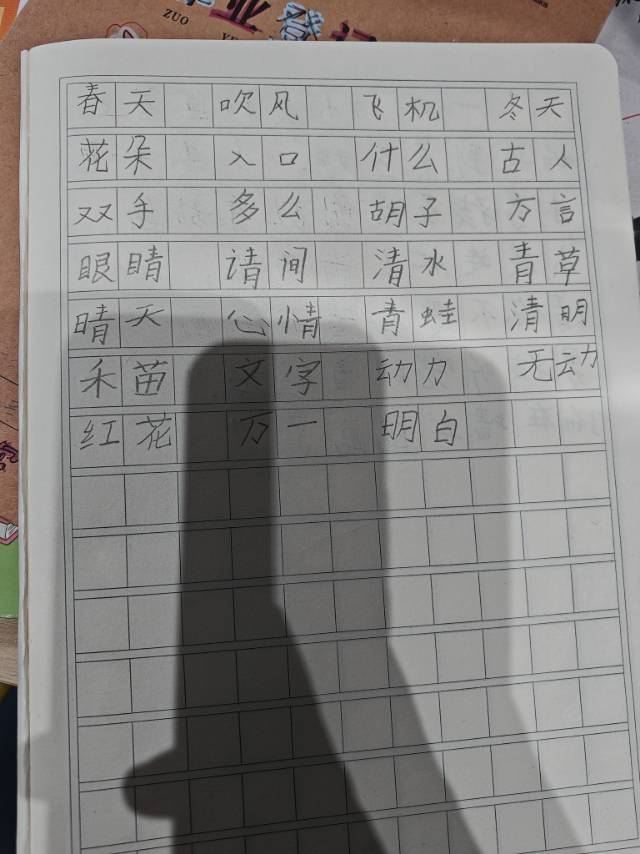 ZUO
业登
春天 吹风 飞机 冬天
花朵 入口 什么 古人
双手 多么 胡子 方言
眼睛 请间 清水 青草
晴天 心情 青蛙 清明
禾苗 文字 动力 无动
红花 万一 明白